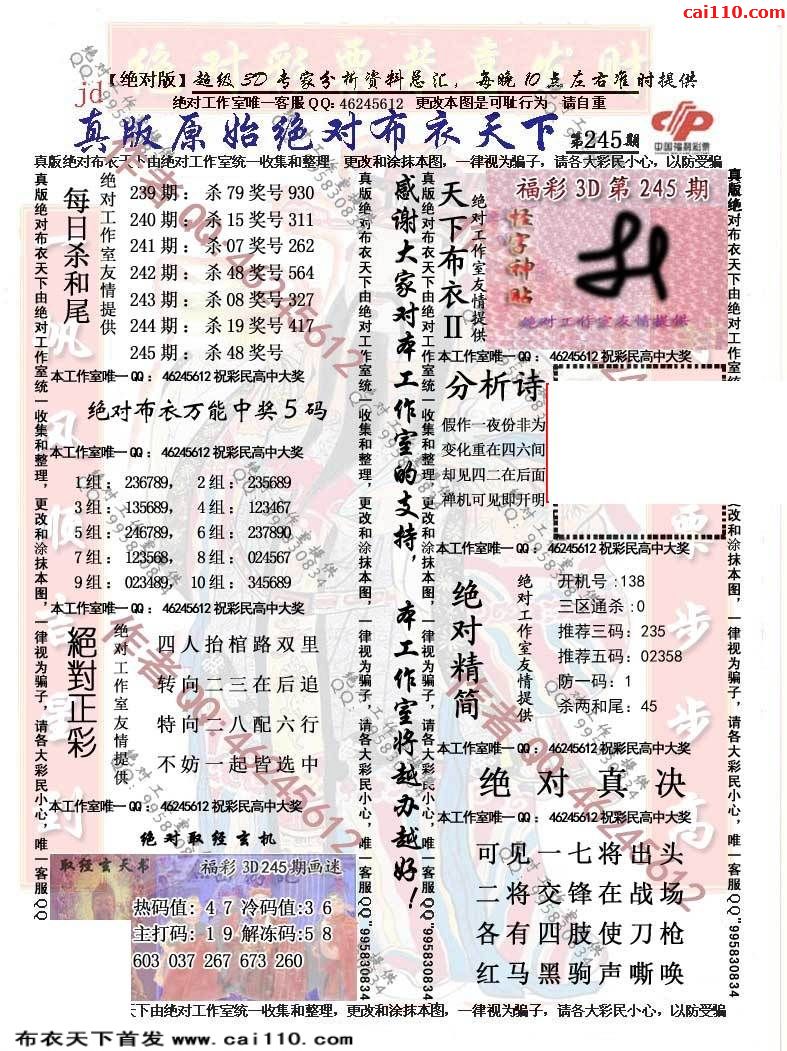 cai110.com
【绝对版】超级3D专家分析资料总汇，每晚10点左右准时提供
jd
绝对工作室唯一客服QQ: 46245612 更改本图是可耻行为 请自重
真版原始绝对布衣天下 第245期
中国福利彩票
真版绝对布衣天下由绝对工作室统一收集和整理，更改和涂抹本图，一律视为骗子，请各大彩民小心，以防受骗
每日杀和尾
绝对工作室友情提供
239期：杀79奖号930
240期：杀15奖号311
241期：杀07奖号262
242期：杀48奖号564
243期：杀08奖号327
244期：杀19奖号417
245期：杀48奖号
本工作室唯一QQ：46245612祝彩民高中大奖
绝对布衣万能中奖5码
本工作室唯一QQ：46245612祝彩民高中大奖
1组：236789， 2组：235689
3组：135689， 4组：123467
5组：246789， 6组：237890
7组：123568， 8组：024567
9组：023489， 10组：345689
本工作室唯一QQ：46245612祝彩民高中大奖
絕對正彩
绝对工作室友情提供
四人抬棺路双里
转向二三在后追
特向二八配六行
不妨一起皆选中
本工作室唯一QQ：46245612祝彩民高中大奖
绝对取经玄机
取经玄天书 福彩3D245期画迷
热码值：47冷码值：36
主打码：19解冻码：58
603 037 267 673 260
感谢大家对本工作室的支持，本工作室将越办越好！
天下布衣II
绝对工作室友情提供
福彩3D第245期
怪字神贴
绝对工作室友情提供
本工作室唯一QQ：46245612祝彩民高中大奖
分析诗
假作一夜份非为
变化重在四六间
却见四二在后面
禅机可见即开明
本工作室唯一QQ：46245612祝彩民高中大奖
绝对精简
绝对工作室友情提供
开机号：138
三区通杀：0
推荐三码：235
推荐五码：02358
防一码：1
杀两和尾：45
本工作室唯一QQ：46245612祝彩民高中大奖
绝对真决
本工作室唯一QQ：46245612祝彩民高中大奖
可见一七将出头
二将交锋在战场
各有四肢使刀枪
红马黑驹声嘶唤
真版绝对布衣天下由绝对工作室统一收集和整理，更改和涂抹本图，一律视为骗子，请各大彩民小心，唯一客服QQ"995830834
天下由绝对工作室统一收集和整理，更改和涂抹本图，一律视为骗子，请各大彩民小心，以防受骗
布衣天下首发 www.cai110.com